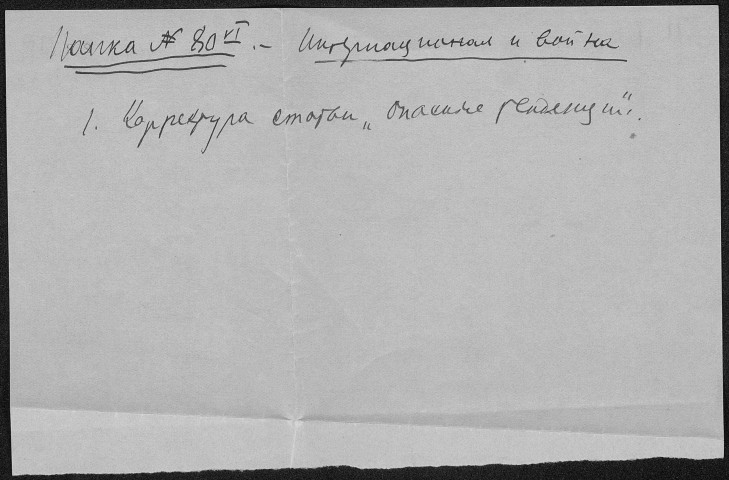 Папка № 80 VI. – Интернационал и война
1. Корректура статьи „Опасные тенденции“.